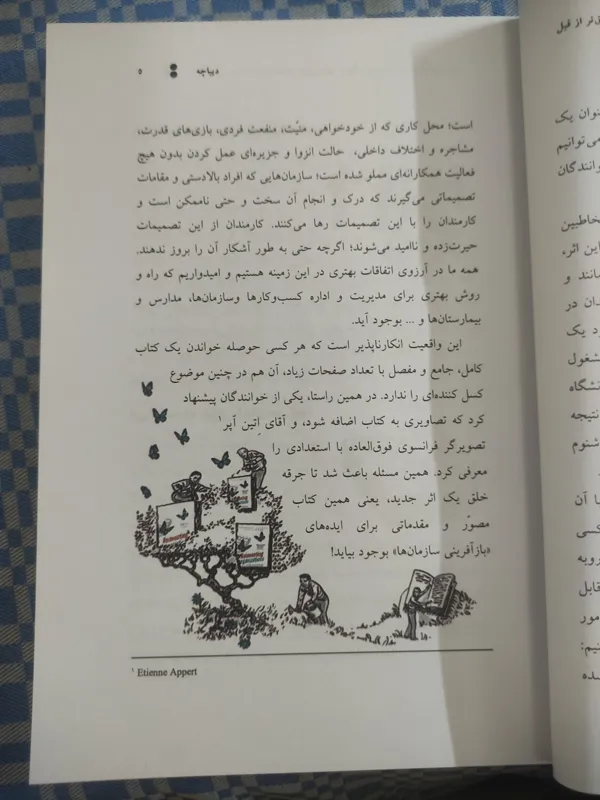 دیباچه ۵
است؛ محل کاری که از خودخواهی، منیّت، منفعت فردی، بازی‌های قدرت،
مشاجره و اختلاف داخلی، حالت انزوا و جزیره‌ای عمل کردن بدون هیچ
فعالیت همکارانه‌ای مملو شده است؛ سازمان‌هایی که افراد بالادستی و مقامات
تصمیماتی می‌گیرند که درک و انجام آن سخت و حتی ناممکن است و
کارمندان را با این تصمیمات رها می‌کنند. کارمندان از این تصمیمات
حیرت‌زده و ناامید می‌شوند؛ اگرچه حتی به طور آشکار آن را بروز ندهند.
همه ما در آرزوی اتفاقات بهتری در این زمینه هستیم و امیدواریم که راه و
روش بهتری برای مدیریت و اداره کسب‌وکارها وسازمان‌ها، مدارس و
بیمارستان‌ها و ... بوجود آید.
این واقعیت انکارناپذیر است که هر کسی حوصله خواندن یک کتاب
کامل، جامع و مفصل با تعداد صفحات زیاد، آن هم در چنین موضوع
کسل کننده‌ای را ندارد. در همین راستا، یکی از خوانندگان پیشنهاد
کرد که تصاویری به کتاب اضافه شود، و آقای اِتین آپر۱
تصویرگر فرانسوی فوق‌العاده با استعدادی را
معرفی کرد. همین مسئله باعث شد تا جرقه
خلق یک اثر جدید، یعنی همین کتاب
مصوّر و مقدماتی برای ایده‌های
«بازآفرینی سازمان‌ها» بوجود بیاید!
۱ Etienne Appert
‌تر از قبل
عنوان یک
می‌توانیم
وانندگان
خاطبین
این اثر،
مانند و
دان در
د یک
شغول
نشگاه
نتیجه
شنوم
ا آن
کسی
رویه
قابل
مور
نیم:
شده